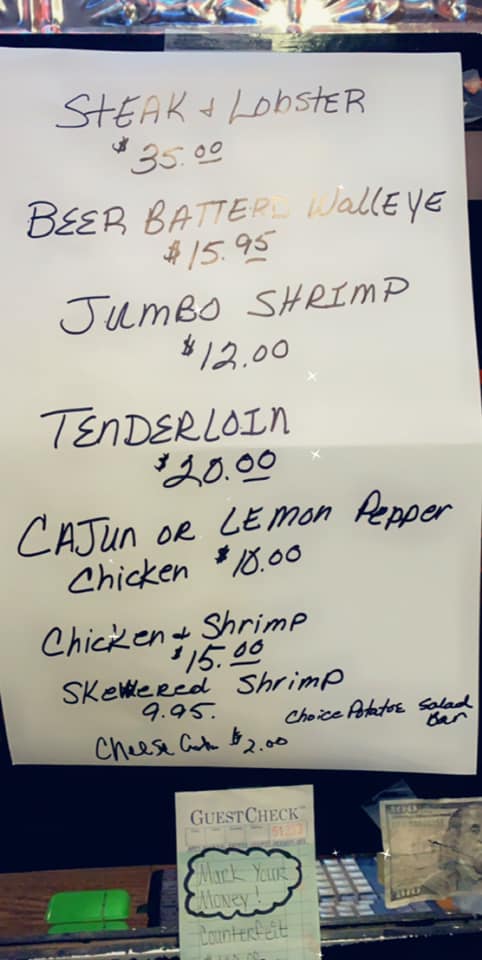 STEAK & LobSTER
$35.00
BEER BATTERD WallEYE
$15.95
JUMBO SHRIMP
$12.00
TENDERLOIN
$20.00
CAJUN OR LEMON Pepper
Chicken $10.00
Chicken & Shrimp
$15.00
SKewered Shrimp
9.95.
Choice Potatoe Salad
Bar
Cheese $2.00
GUESTCHECK
Mark Your
Money!
Counterfeit